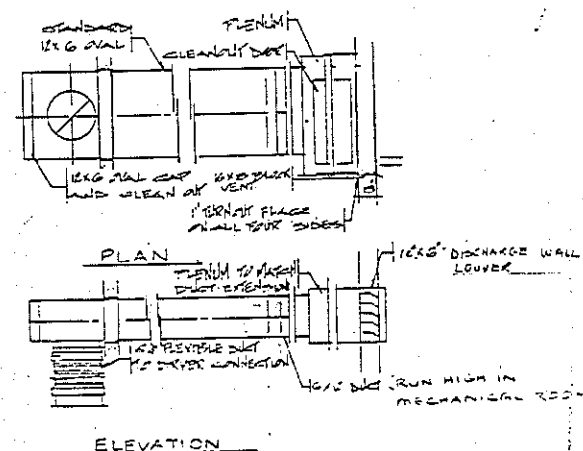 STANDARD
12x6 OVAL
PLENUM
CLEANOUT DOOR
12x6 OVAL CAP
AND CLEAN OUT VENT
1" TURNOUT FLAGE
ON ALL FOUR SIDES
8"
PLAN
PLENUM TO MATCH
DUCT EXTENSION
16"x6" DISCHARGE WALL
LOUVER
FLEXIBLE DUCT
TO DRYER CONNECTION
DUCT
RUN HIGH IN
MECHANICAL ROOM
ELEVATION